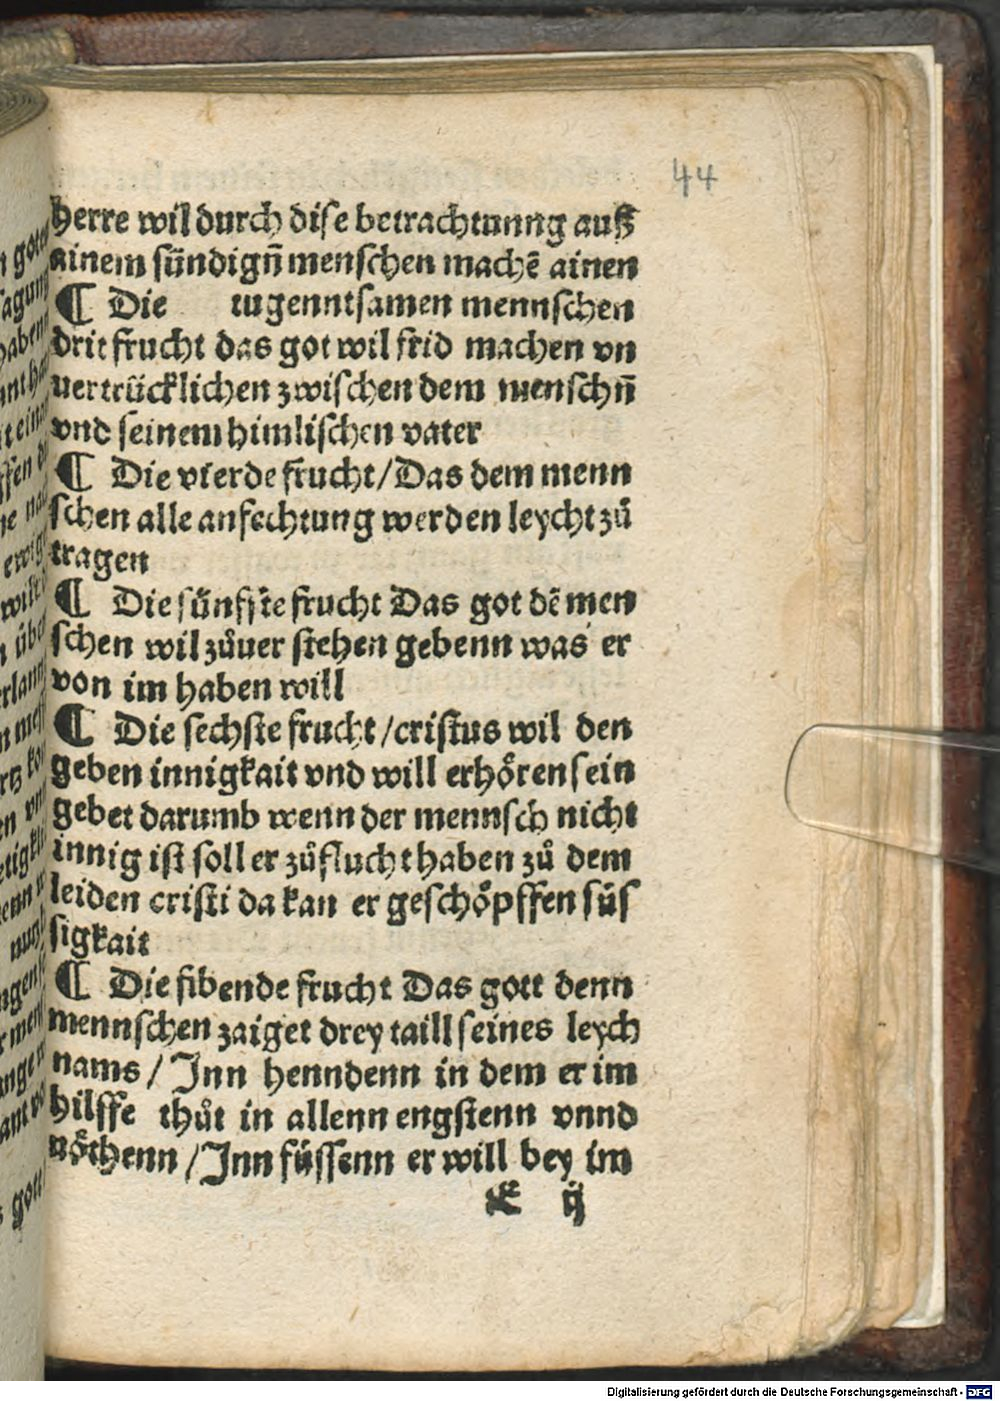 44
herre wil durch dise betrachtunng auß
ainem sündign̄ menschen machē ainen
¶ Die tugenntsamen mennschen
drit frucht das got wil frid machen vn
uertrücklichen zwischen dem menschn̄
vnd seinem himlischen vater
¶ Die vierde frucht/Das dem menn
schen alle anfechtung werden leycht zů
tragen
¶ Die fünffte frucht Das got dē men
schen wil zůuer stehen gebenn was er
von im haben will
¶ Die sechste frucht/cristus wil den
geben innigkait vnd will erhören sein
gebet darumb wenn der mennsch nicht
innig ist soll er zůflucht haben zů dem
leiden cristi da kan er geschöpffen süs
sigkait
¶ Die sibende frucht Das gott denn
mennschen zaiget drey taill seines leych
nams/Inn henndenn in dem er im
hilffe thůt in allenn engstenn vnnd
nöthenn/Inn füssenn er will bey im
ij
Digitalisierung gefördert durch die Deutsche Forschungsgemeinschaft - DFG